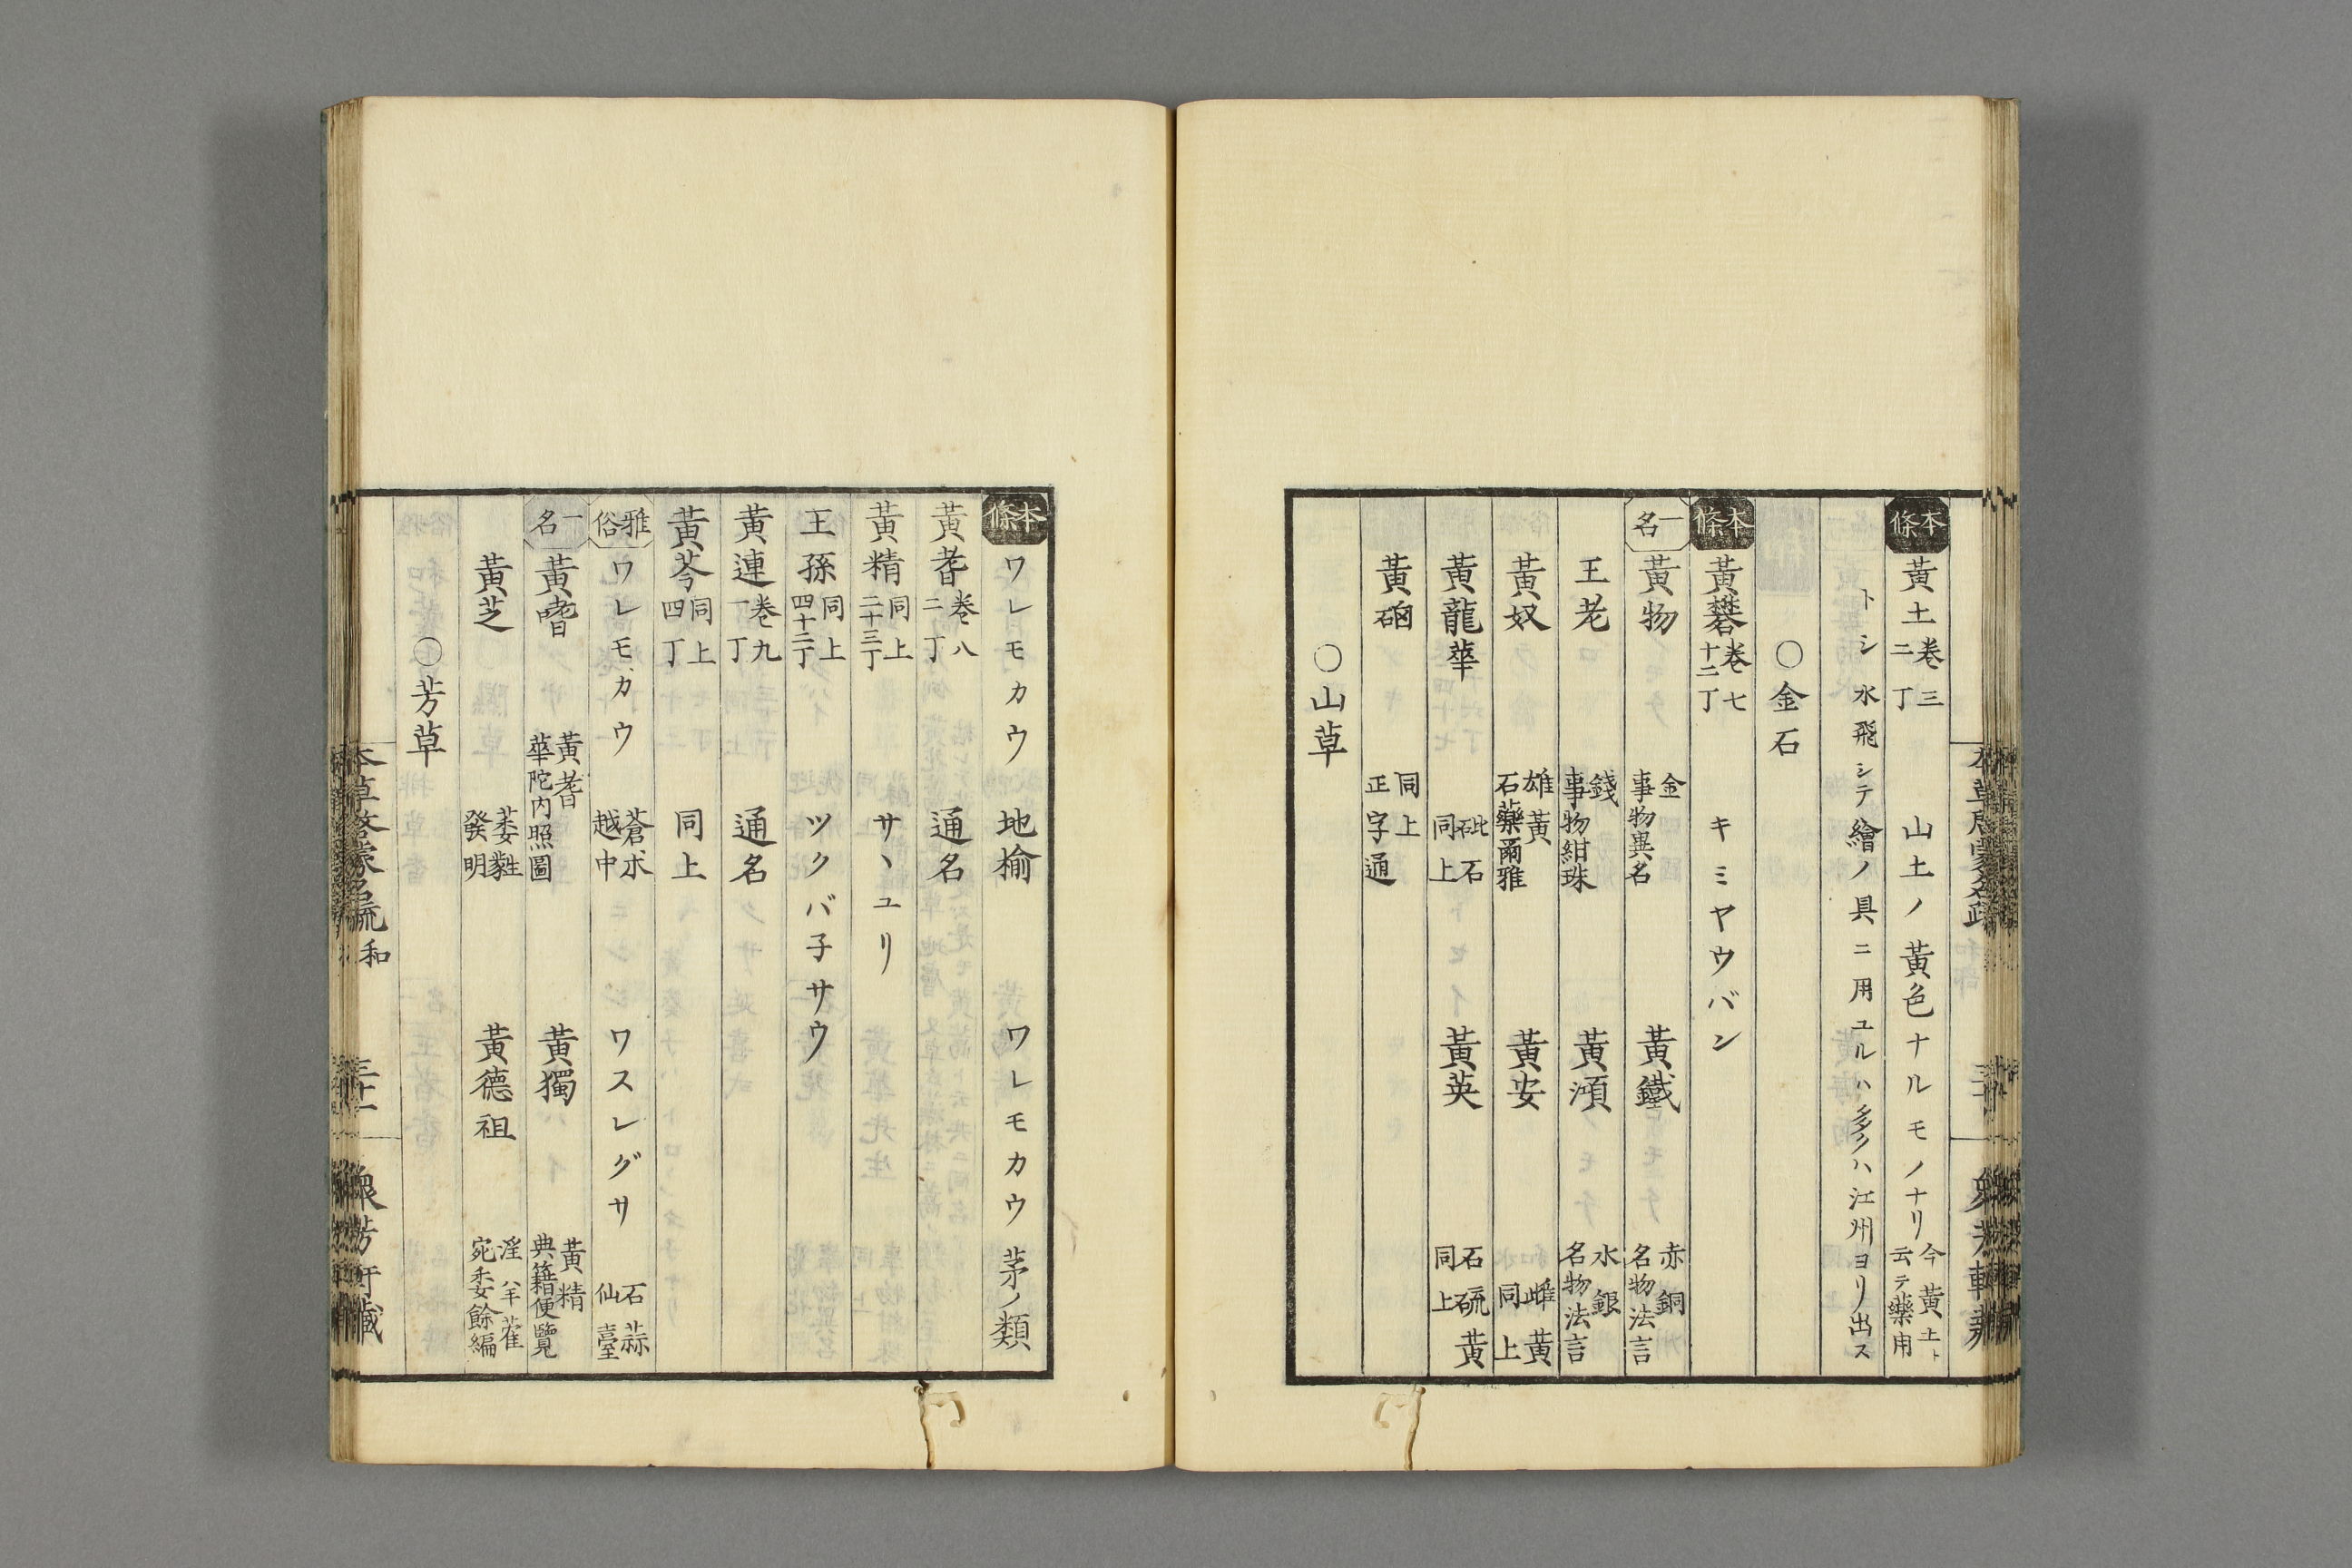 本條 黃土 卷三 二丁 山土ノ黃色ナルモノナリ 今黃土ト 云テ藥用
トシ水飛シテ繪ノ具ニ用ユルハ多クハ江州ヨリ出ス
○金石
本條 黃礬 卷七 十二丁 キミヤウバン
一名 黃物 金 事物異名 黃鐵 赤銅 名物法言
王老 錢 事物紺珠 黃澒 水銀 名物法言
黃奴 雄黃 石藥爾雅 黃安 雌黃 同上
黃龍華 砒石 同上 黃英 石硫黃 同上
黃硇 同上 正字通
○山草
本條 ワレモカウ 地楡 ワレモカウ 茅ノ類
黃耆 卷八 二丁 通名
黃精 同上 二十三丁 サヽユリ
王孫 同上 四十二丁 ツクバ子サウ
黃連 卷九 一丁 通名
黃芩 同上 四丁 同上
雅俗 ワレモカウ 蒼朮 越中 ワスレグサ 石蒜 仙臺
一名 黃嗜 黃耆 華陀内照圖 黃獨 黃精 典籍便覽
黃芝 萎㽔 發明 黃德祖 淫羊藿 宛委餘編
○芳草
本草啓蒙名疏 和 三十一 衆芳軒藏